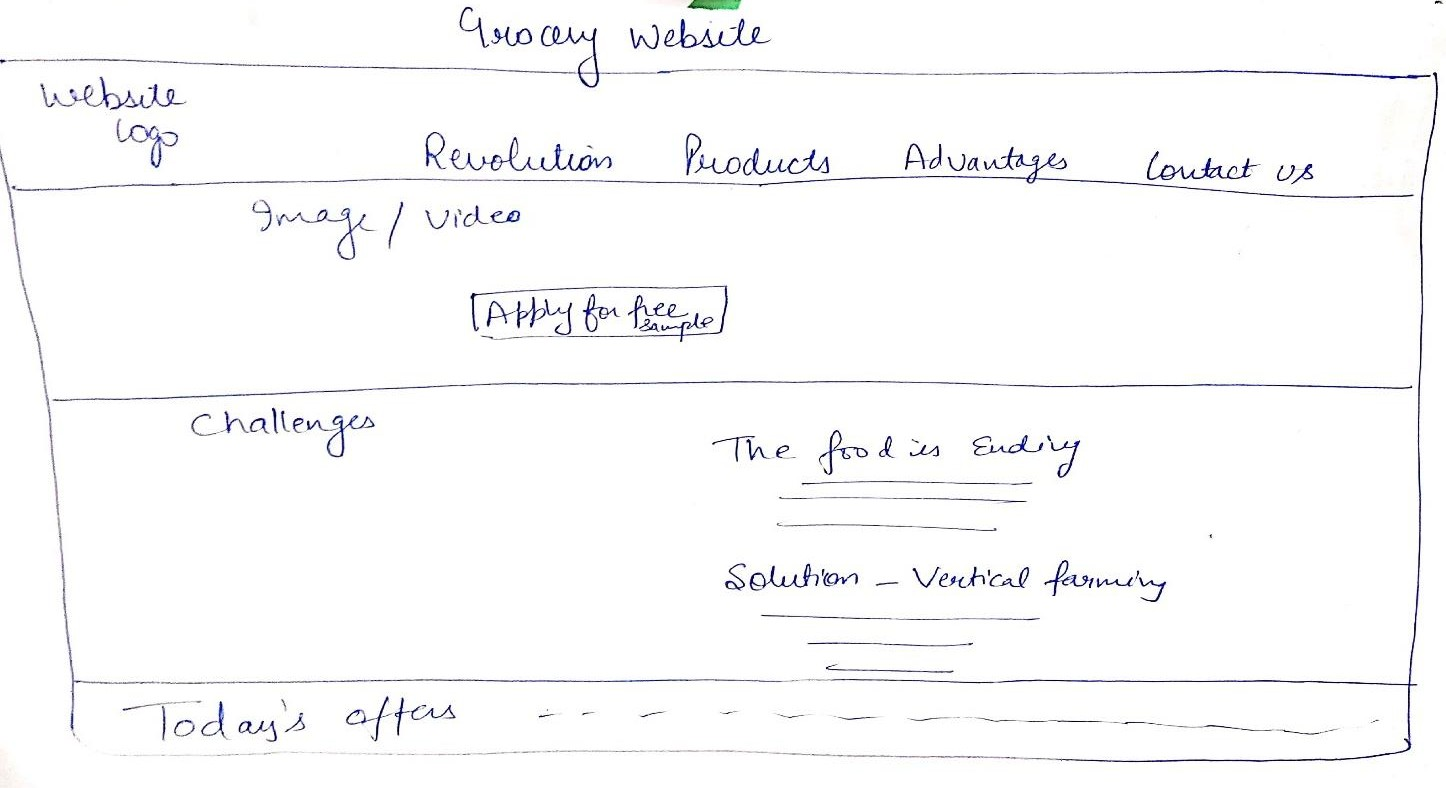 Grocery Website
Website
Logo
Revolution Products Advantages Contact us
Image / Video
Apply for free
sample
Challenges
The food is Ending
Solution - Vertical farming
Today's offers